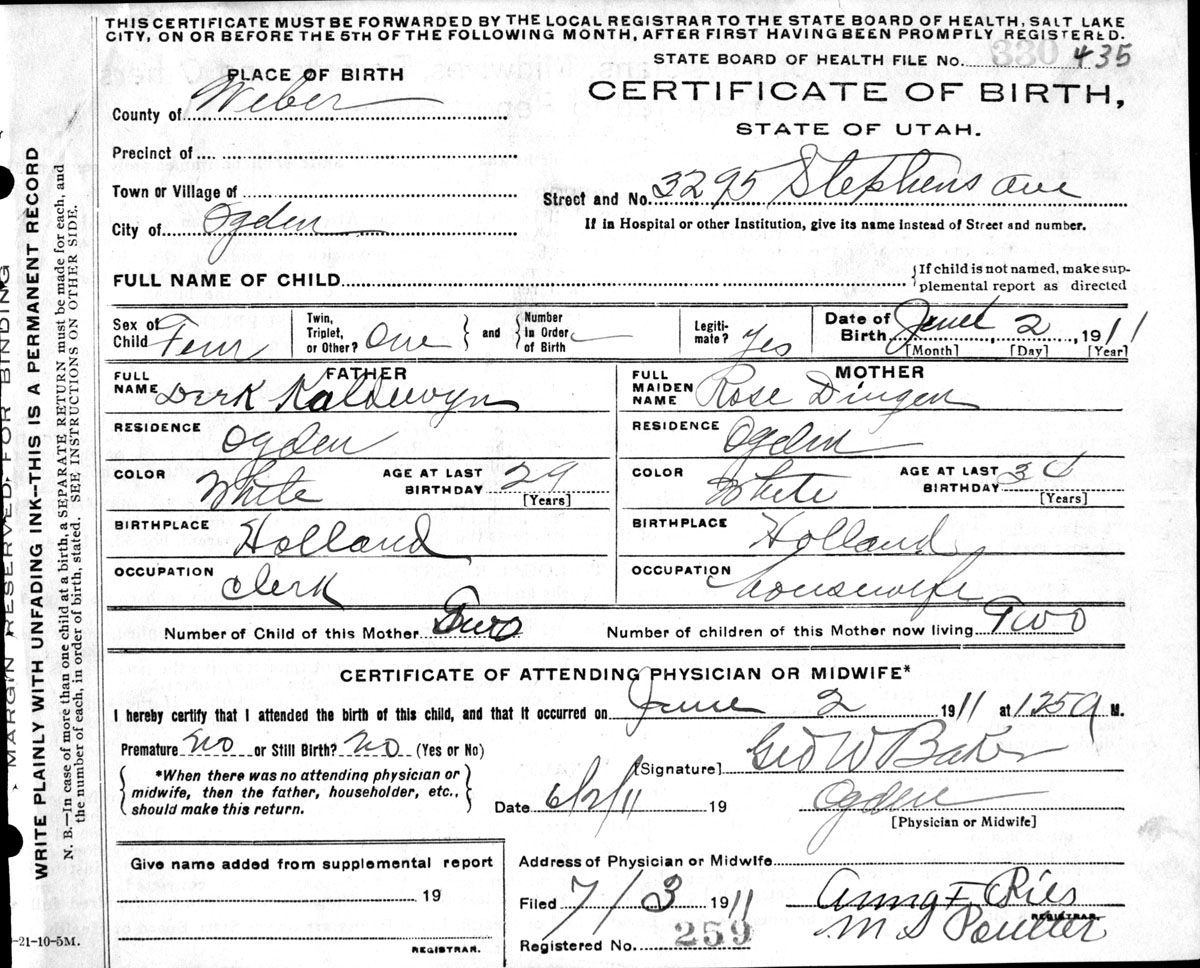 THIS CERTIFICATE MUST BE FORWARDED BY THE LOCAL REGISTRAR TO THE STATE BOARD OF HEALTH, SALT LAKE
CITY, ON OR BEFORE THE 5TH OF THE FOLLOWING MONTH, AFTER FIRST HAVING BEEN PROMPTLY REGISTERED.
STATE BOARD OF HEALTH FILE No. 330 435
PLACE OF BIRTH
CERTIFICATE OF BIRTH,
STATE OF UTAH.
County of Weber
Precinct of
Town or Village of
Street and No. 3295 Stephens ave
City of Ogden
If in Hospital or other Institution, give its name instead of Street and number.
FULL NAME OF CHILD
If child is not named, make sup-
plemental report as directed
Sex of Child Fem
Twin, Triplet, or Other? One and Number in Order of Birth
Legiti-mate? Yes
Date of Birth June 2, 1911
[Month] [Day] [Year]
FATHER
FULL NAME Derk Kaldewyn
RESIDENCE Ogden
COLOR White AGE AT LAST BIRTHDAY 29
[Years]
BIRTHPLACE Holland
OCCUPATION Clerk
MOTHER
FULL MAIDEN NAME Rose Dingen
RESIDENCE Ogden
COLOR White AGE AT LAST BIRTHDAY
[Years]
BIRTHPLACE Holland
OCCUPATION housewife
Number of Child of this Mother Two
Number of children of this Mother now living Two
CERTIFICATE OF ATTENDING PHYSICIAN OR MIDWIFE*
I hereby certify that I attended the birth of this child, and that it occurred on June 2 1911 at 1259 M.
Premature No or Still Birth? No (Yes or No)
*When there was no attending physician or
midwife, then the father, householder, etc.,
should make this return.
[Signature] Geo W Baker
Date 6/2/11 19
Ogden
[Physician or Midwife]
Give name added from supplemental report
19
REGISTRAR.
Address of Physician or Midwife
Filed 7/3 1911
Anna F. Ries
REGISTRAR.
M S Poulter
Registered No. 259
MARGIN RESERVED FOR BINDING
WRITE PLAINLY WITH UNFADING INK—THIS IS A PERMANENT RECORD
N. B.—In case of more than one child at a birth, a SEPARATE RETURN must be made for each, and
the number of each, in order of birth, stated. SEE INSTRUCTIONS ON OTHER SIDE.
-21-10-5M.